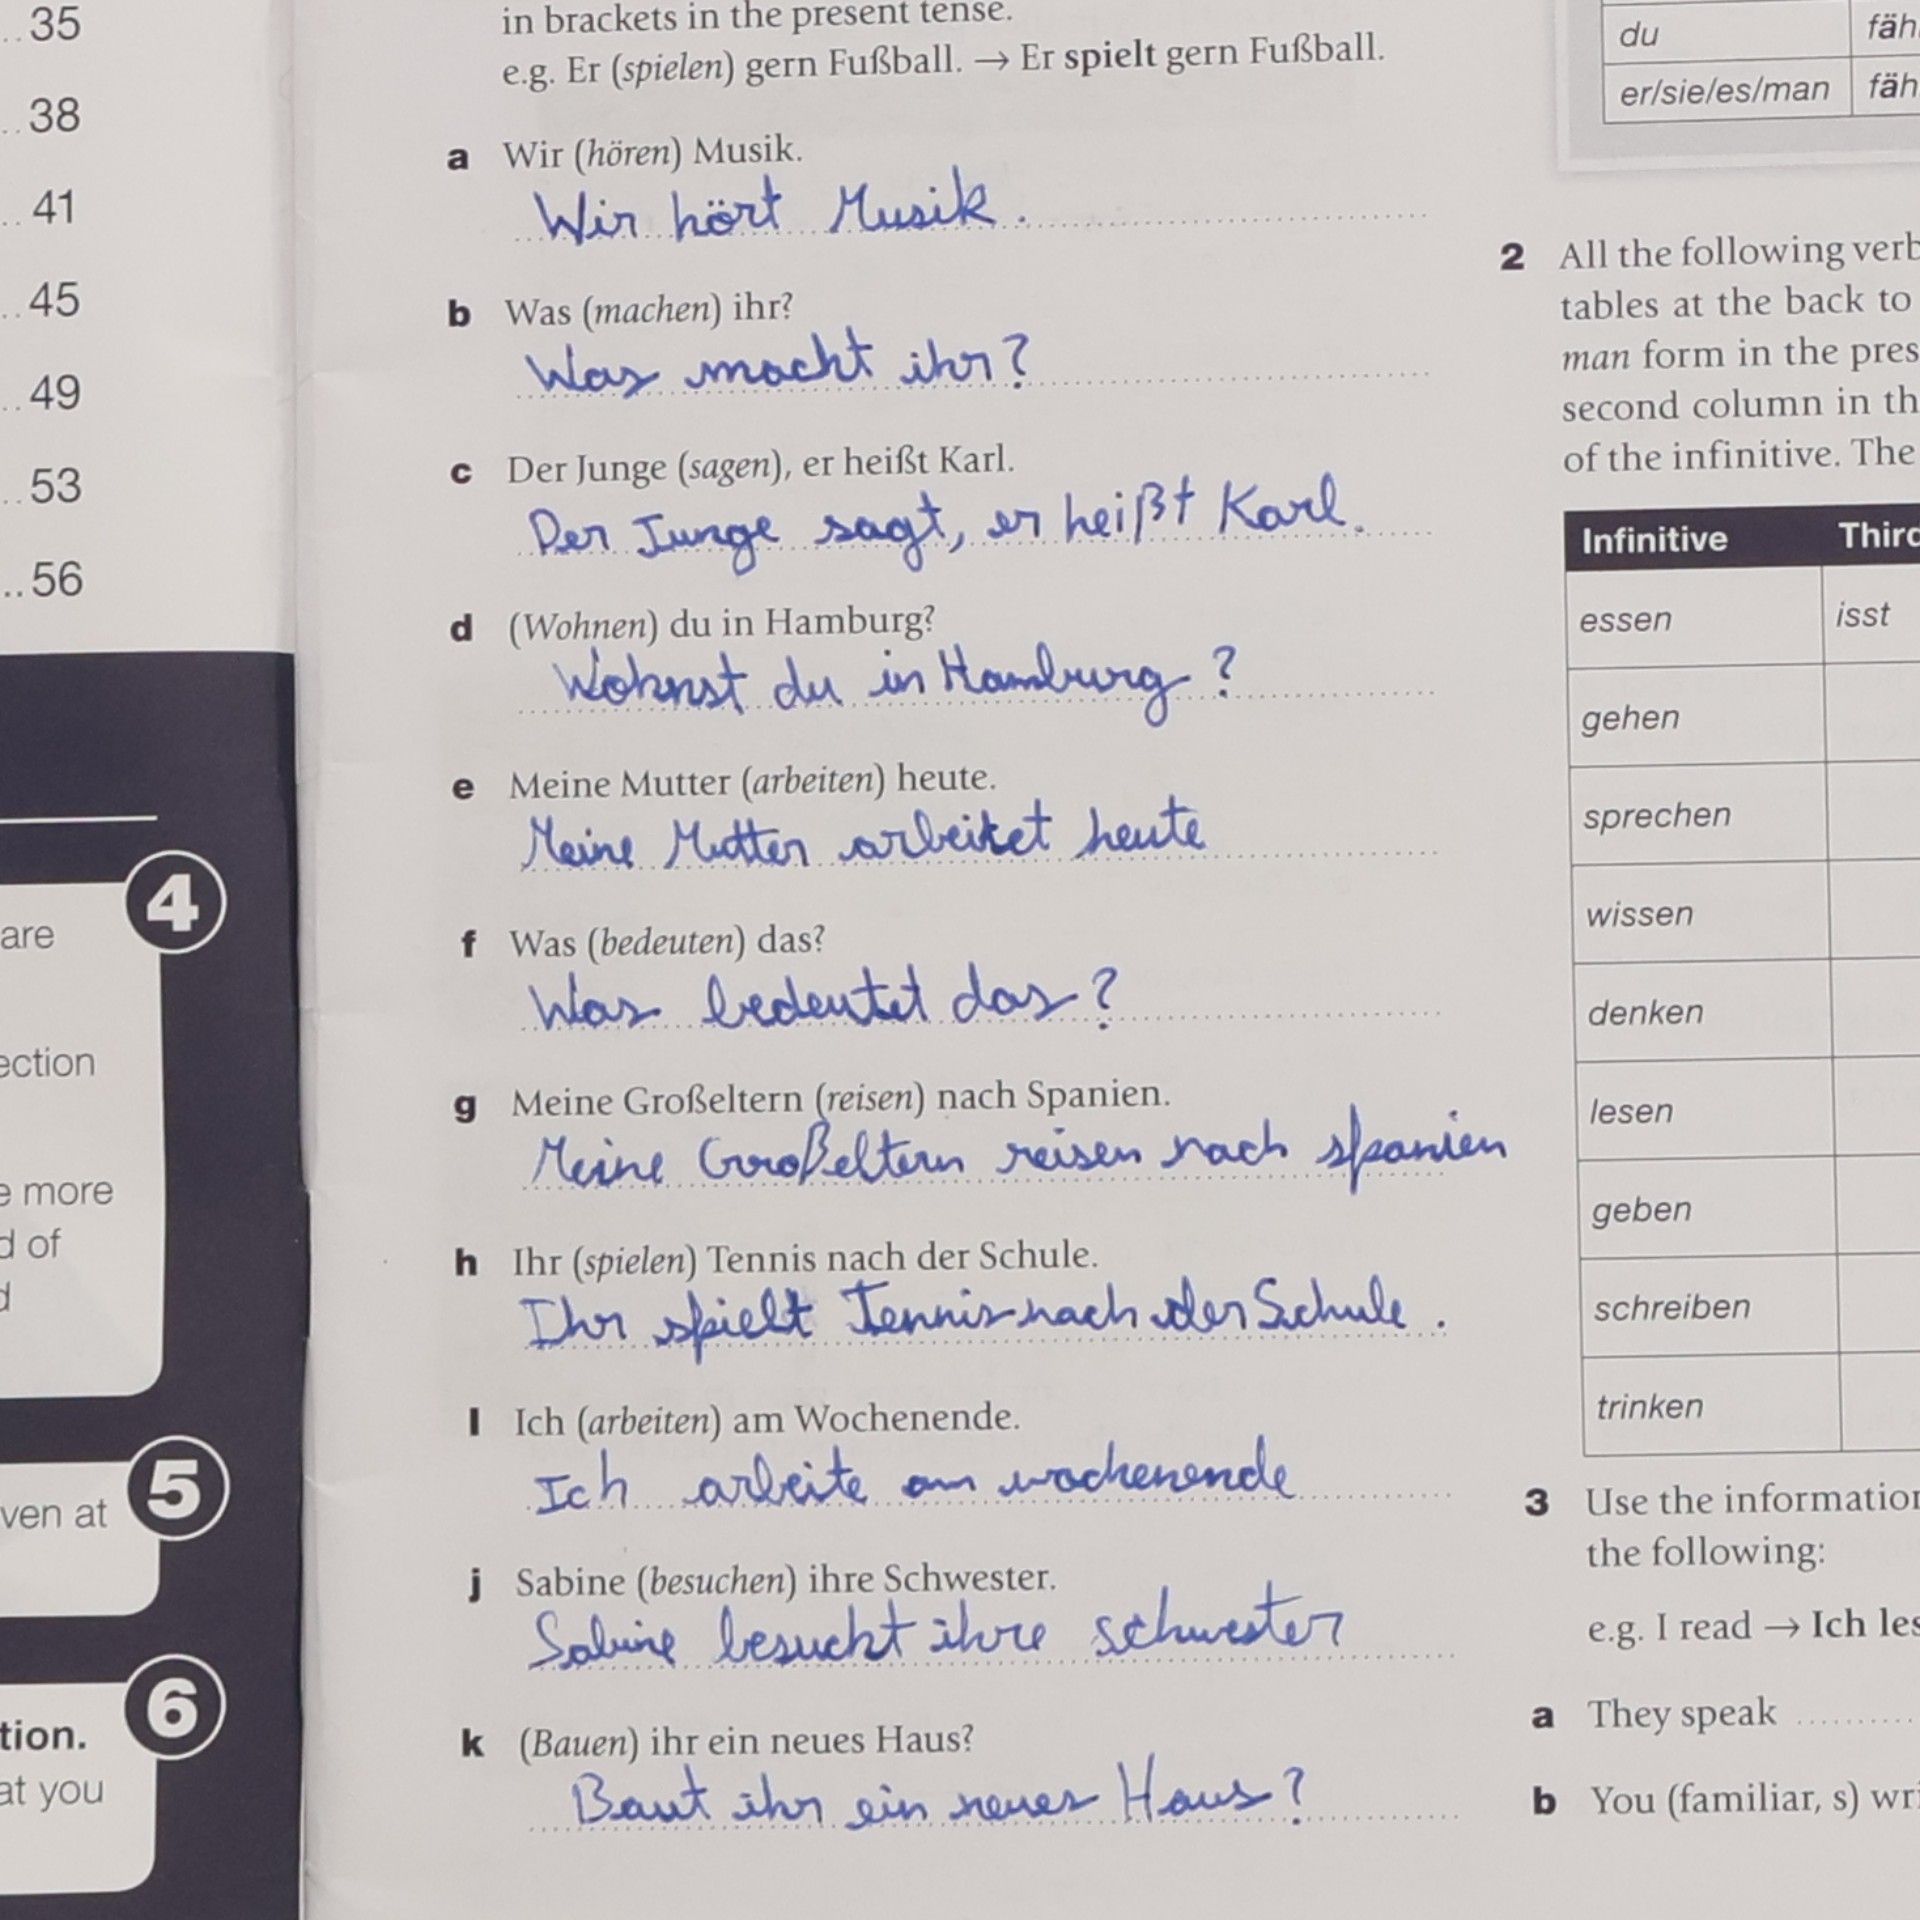 ..35
..38
..41
..45
..49
..53
..56
are
4
ection
e more
d of
d
ven at
5
tion.
6
at you
in brackets in the present tense.
e.g. Er (spielen) gern Fußball. → Er spielt gern Fußball.
a Wir (hören) Musik.
Wir hört Musik.
b Was (machen) ihr?
Was macht ihr?
c Der Junge (sagen), er heißt Karl.
Der Junge sagt, er heißt Karl.
d (Wohnen) du in Hamburg?
Wohnst du in Hamburg?
e Meine Mutter (arbeiten) heute.
Meine Mutter arbeitet heute
f Was (bedeuten) das?
Was bedeutet das?
g Meine Großeltern (reisen) nach Spanien.
Meine Großeltern reisen nach spanien
h Ihr (spielen) Tennis nach der Schule.
Ihr spielt Tennis nach der Schule.
I Ich (arbeiten) am Wochenende.
Ich arbeite am wochenende
j Sabine (besuchen) ihre Schwester.
Sabine besucht ihre schwester
k (Bauen) ihr ein neues Haus?
Baut ihr ein neues Haus?
du fäh
er/sie/es/man fäh
2 All the following verb
tables at the back to
man form in the pres
second column in th
of the infinitive. The
Infinitive Third
essen isst
gehen
sprechen
wissen
denken
lesen
geben
schreiben
trinken
3 Use the information
the following:
e.g. I read → Ich les
a They speak ..........
b You (familiar, s) wri